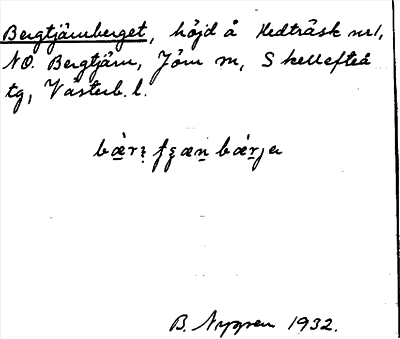 Bergtjärnberget, höjd å Hedträsk nr 1,
NO. Bergtjärn, Jörn sn, Skellefteå
tg, Västerb. l.
B. Nygren 1932.